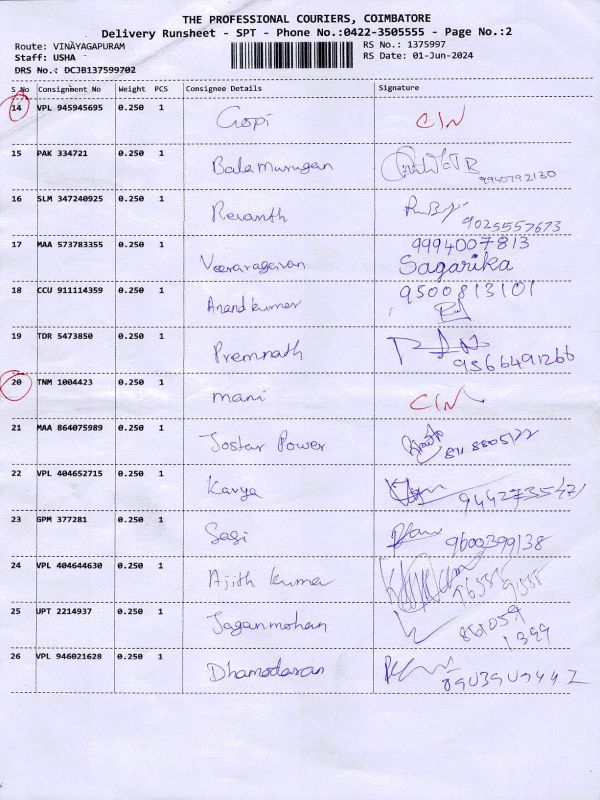 THE PROFESSIONAL COURIERS, COIMBATORE
Delivery Runsheet - SPT - Phone No.:0422-3505555 - Page No.:2
Route: VINAYAGAPURAM RS No.: 1375997
Staff: USHA RS Date: 01-Jun-2024
DRS No.: DCJB137599702
S No Consignment No Weight PCS Consignee Details Signature
14 VPL 945945695 0.250 1 Gopi CIN
15 PAK 334721 0.250 1 Balamurugan
9940792130
16 SLM 347240925 0.250 1 Revanth
9025557673
17 MAA 573783355 0.250 1 9994007813
Veeraragavan Sagarika
18 CCU 911114359 0.250 1 9500813101
Anandkumar
19 TDR 5473850 0.250 1 Premnath
9566491266
20 TNM 1004423 0.250 1 mani CIN
21 MAA 864075989 0.250 1 Jostar Power
22 VPL 404652715 0.250 1 Kavya
23 GPM 377281 0.250 1 9600399138
24 VPL 404644630 0.250 1 Ajith Kumar
25 UPT 2214937 0.250 1 Jaganmohan
26 VPL 946021628 0.250 1 Dhamodaran